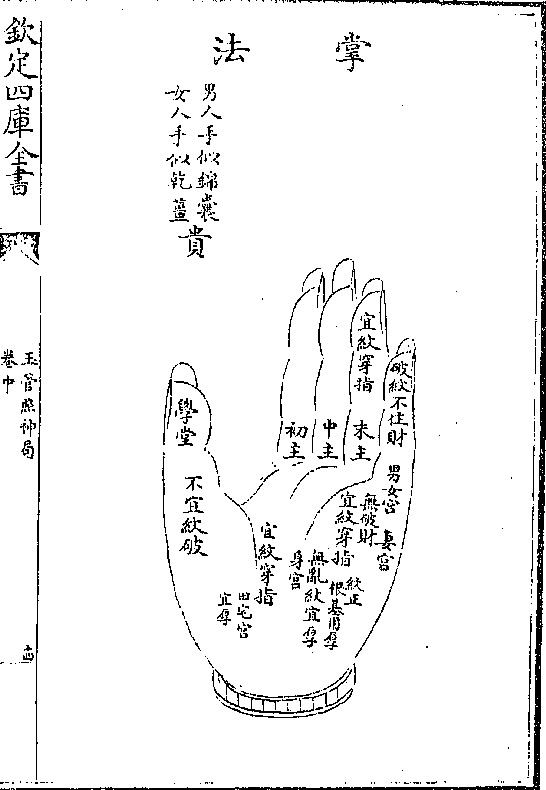 掌法
男人手似錦囊
女人手似乾薑
貴
破紋不住財
宜紋穿指
末主
中主
初主
學堂
不宜紋破
男女宮
妻宮
無破財
宜紋穿指
紋正
根基
無亂紋宜厚
身宮
宜紋穿指
田宅宮
宜厚
欽定四庫全書
玉管照神局
卷中